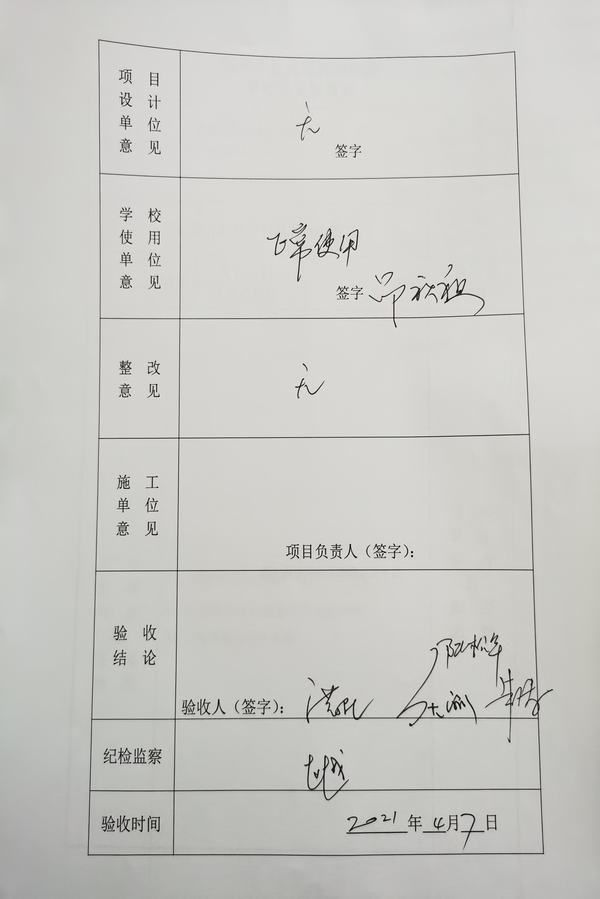 项目
设计
单位
意见
无
签字
学校
使用
单位
意见
正常使用
签字
整改
意见
无
施工
单位
意见
项目负责人（签字）：
验收
结论
验收人（签字）：
纪检监察
验收时间
2021年4月7日